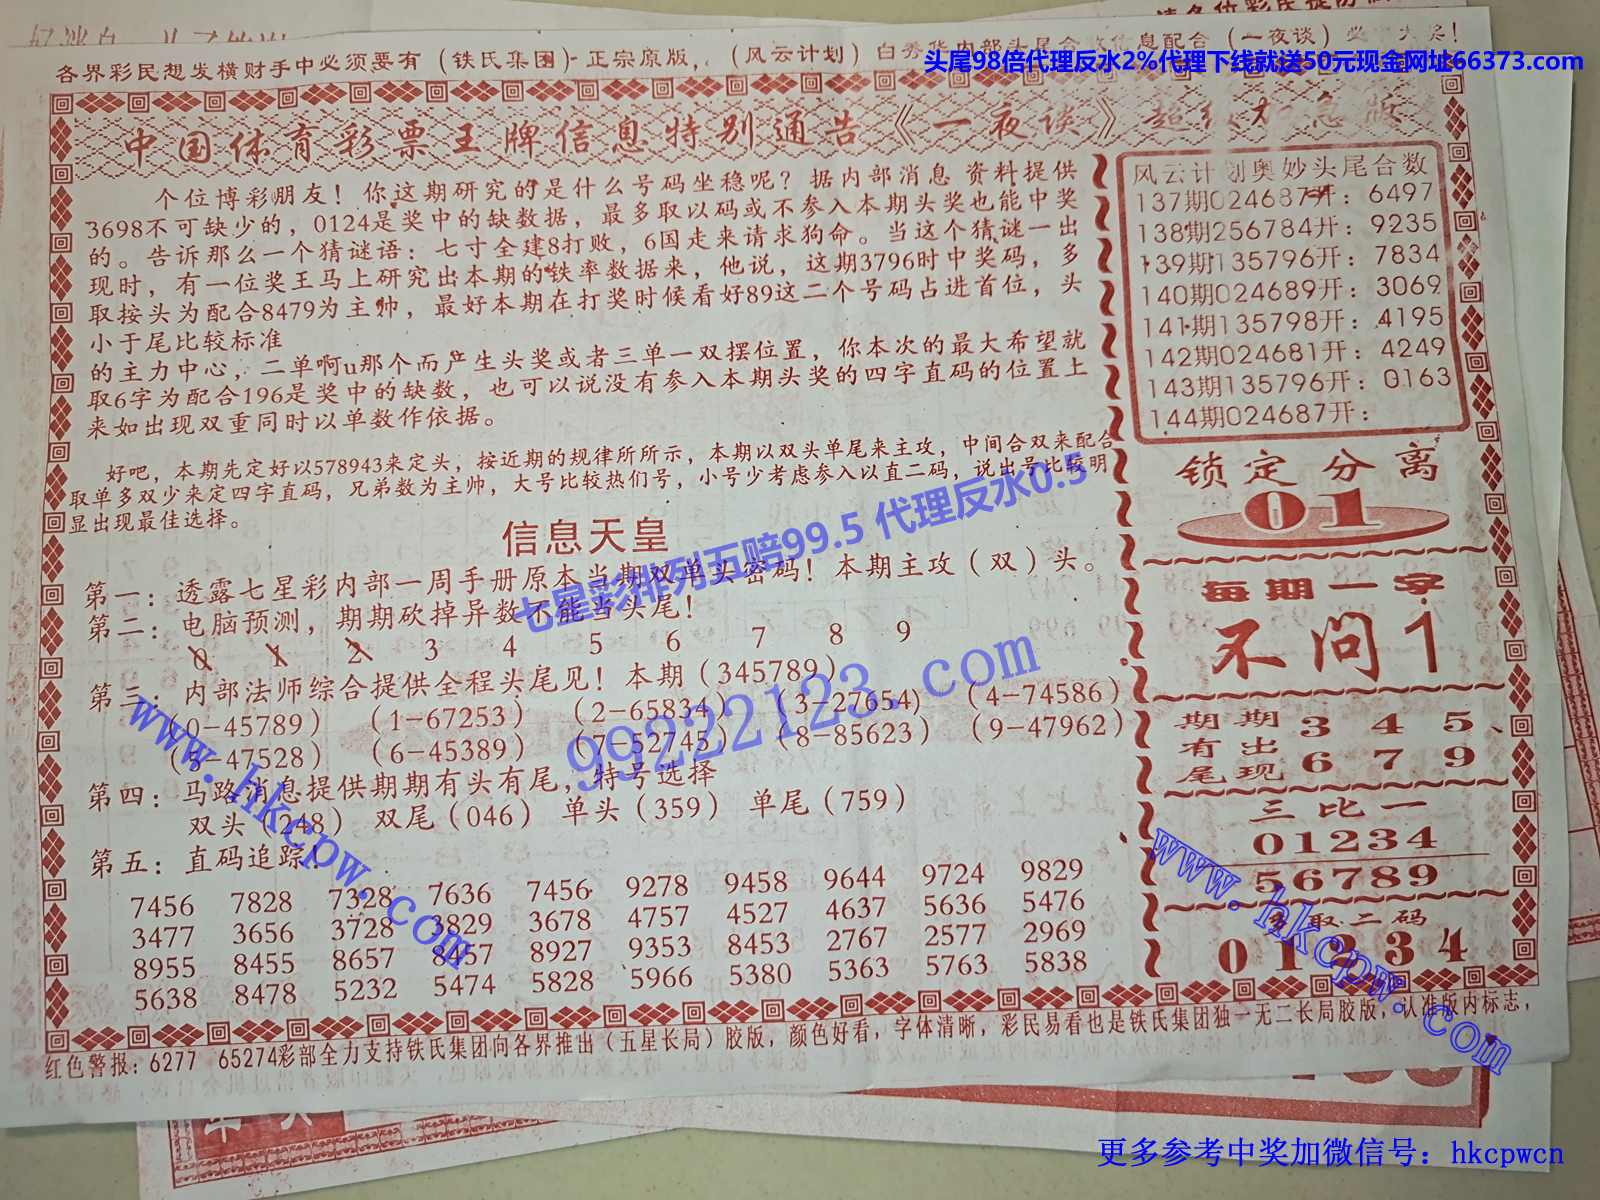 各界彩民想发横财手中必须要有（铁氏集团)-正宗原版,（风云计划）白秀华内部头尾合数信息配合（一夜谈）必中大奖!
头尾98倍代理反水2%代理下线就送50元现金网址66373.com
中国体育彩票王牌信息特别通告《一夜谈》超级加急版
个位博彩朋友！你这期研究的是什么号码坐稳呢？据内部消息 资料提供
3698不可缺少的，0124是奖中的缺数据，最多取以码或不参入本期头奖也能中奖
的。告诉那么一个猜谜语：七寸全建8打败，6国走来请求狗命。当这个猜谜一出
现时，有一位奖王马上研究出本期的铁率数据来，他说，这期3796时中奖码，多
取按头为配合8479为主帅，最好本期在打奖时候看好89这二个号码占进首位，头
小于尾比较标准
的主力中心，二单啊u那个而产生头奖或者三单一双摆位置，你本次的最大希望就
取6字为配合196是奖中的缺数，也可以说没有参入本期头奖的四字直码的位置上
来如出现双重同时以单数作依据。
好吧，本期先定好以578943来定头，按近期的规律所所示，本期以双头单尾来主攻，中间合双来配合
取单多双少来定四字直码，兄弟数为主帅，大号比较热们号，小号少考虑参入以直二码，说出号比较明
显出现最佳选择。
七星彩排列五赔99.5 代理反水0.5
信息天皇
第一：透露七星彩内部一周手册原本当期双单头密码！本期主攻（双）头。
第二：电脑预测，期期砍掉异数不能当头尾！
0 1 2 3 4 5 6 7 8 9
第三：内部法师综合提供全程头尾见！本期（345789）
（0-45789） （1-67253） （2-65834） （3-27654） （4-74586）
（5-47528） （6-45389） （7-52743） （8-85623） （9-47962）
第四：马路消息提供期期有头有尾，特号选择
双头（248） 双尾（046） 单头（359） 单尾（759）
第五：直码追踪！
7456 7828 7328 7636 7456 9278 9458 9644 9724 9829
3477 3656 3728 3829 3678 4757 4527 4637 5636 5476
8955 8455 8657 8457 8927 9353 8453 2767 2577 2969
5638 8478 5232 5474 5828 5966 5380 5363 5763 5838
风云计划奥妙头尾合数
137期024687开：6497
138期256784开：9235
139期135796开：7834
140期024689开：3069
141期135798开：4195
142期024681开：4249
143期135796开：0163
144期024687开：
锁定分离
01
每期一字
不问1
期期 3 4 5
有出
尾现 6 7 9
三比一
01234
56789
多取二码
01234
红色警报：6277 65274彩部全力支持铁氏集团向各界推出（五星长局）胶版，颜色好看，字体清晰，彩民易看也是铁氏集团独一无二长局胶版，认准版内标志，
www.hkcpw.com
99222123.com
www.hkcpw.com
更多参考中奖加微信号：hkcpwcn